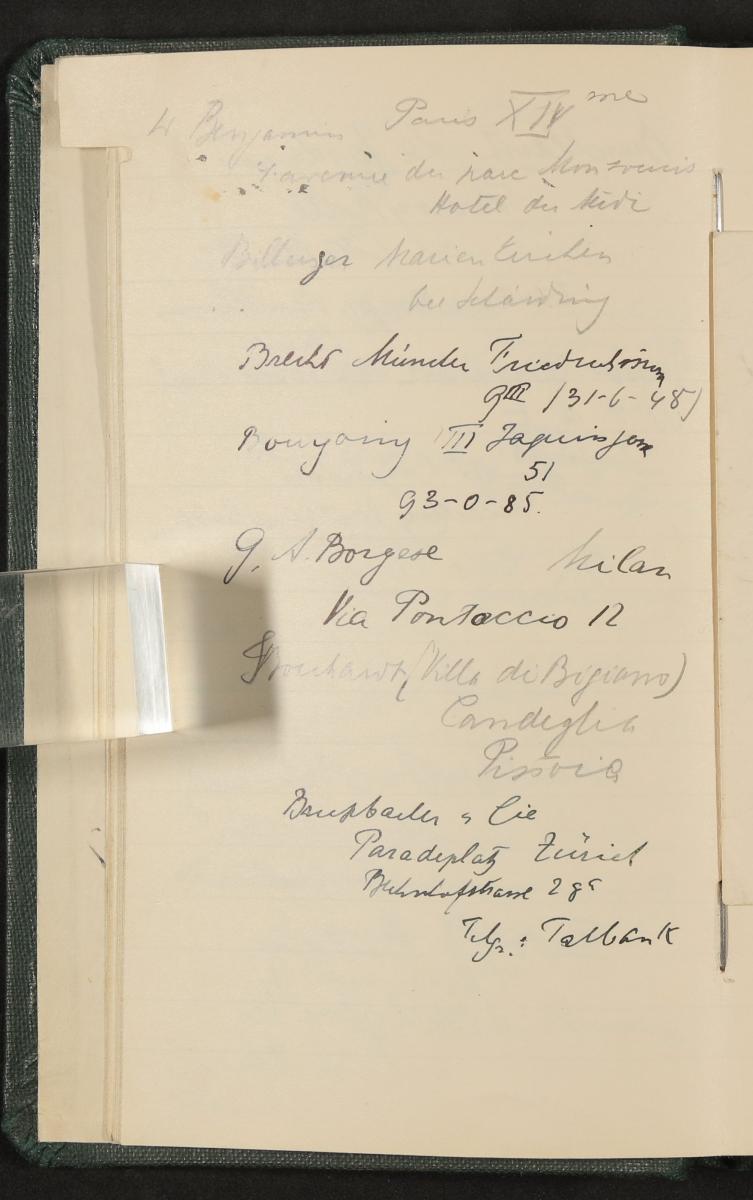 W Benjamin Paris XIV me
4 avenue du parc Monsouris
Hotel du Midi
Billinger Marienkirchen
bei Schärding
Brecht
9 III (31-6-48)
III
51
93-0-85.
G. A. Borgese Milan
Via Pontaccio 12
Borchardt (Villa di Bigiano)
Candeglia
Pistoia
Brupbacher & Cie
Paradeplatz Zürich
Bahnhofstrasse
Telgr.: Talbank